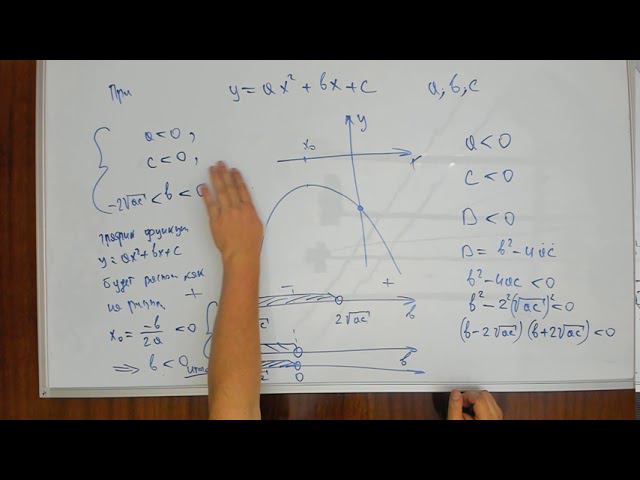 При
y = ax² + bx + c
a, b, c
a < 0,
c < 0,
-2√ac < b < 0
график функции
y = ax² + bx + c
будет располож как
на рисунке
x₀ = -b/2a < 0
⇒ b < 0
x₀
y
x
- +
+
2√ac
b
b
0
a < 0
c < 0
D < 0
D = b² - 4ac
b² - 4ac < 0
b² - 2²(√ac)² < 0
(b - 2√ac)(b + 2√ac) < 0